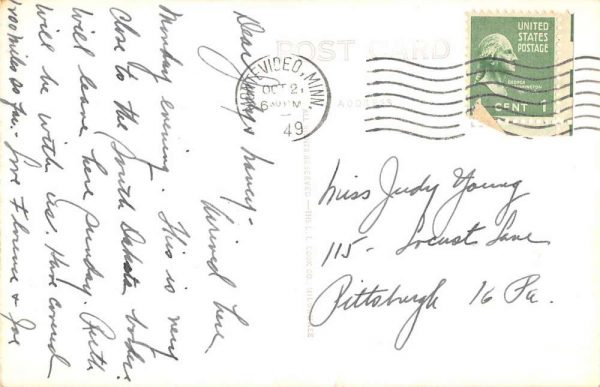 Dear Judy & Nancy -
Arrived here
Monday evening. This is very
close to the South Dakota border.
Will leave here Sunday. Ruth
will be with us. Have covered
1200 miles so far. Love Florence & Joe
POST CARD
ADDRESS
MONTEVIDEO, MINN.
OCT 21
6 PM
49
UNITED
STATES
POSTAGE
GEORGE
WASHINGTON
CENT 1
Miss Judy Young
115 - Locust Lane
Pittsburgh 16 Pa.